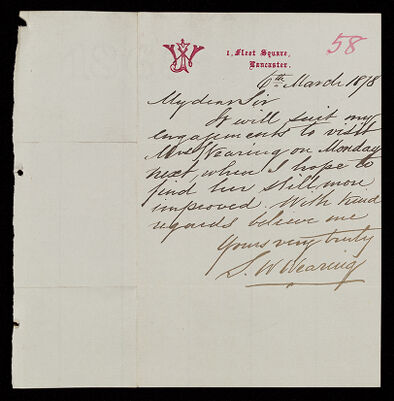 58
1, Fleet Square,
Lancaster.
6th March 1878
My dear Sir
It will suit my
engagements to visit
Mrs Wearing on Monday
next, when I hope to
find her still more
improved. With kind
regards believe me
Yours very truly
S. W Wearing